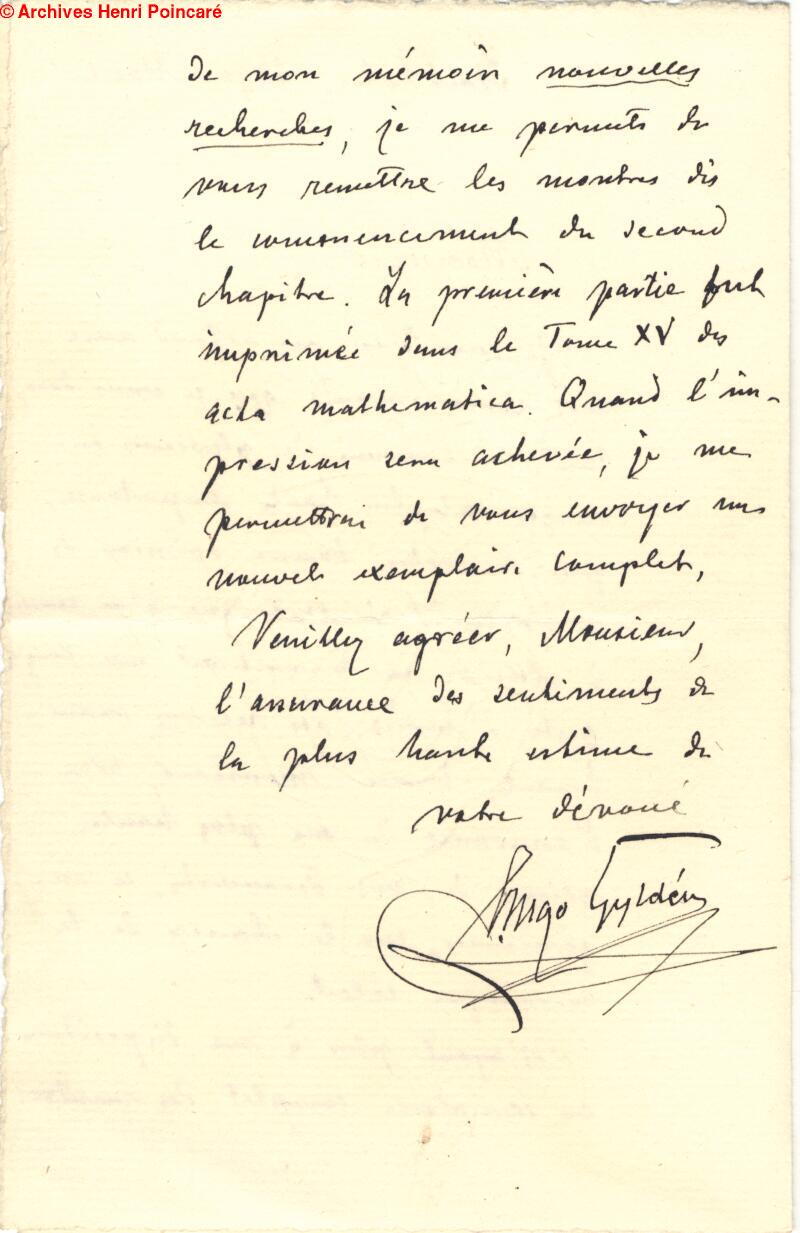 © Archives Henri Poincaré
de mon mémoire nouvelles
recherches, je me permets de
vous remettre les montres dès
le commencement du second
chapitre. La première partie fut
imprimée dans le Tome XV des
acta mathematica. Quand l'im-
pression sera achevée, je me
permettrai de vous envoyer un
nouvel exemplaire complet,
Veuillez agréer, Monsieur,
l'assurance des sentiments de
la plus haute estime de
votre dévoué
Hugo Gyldén